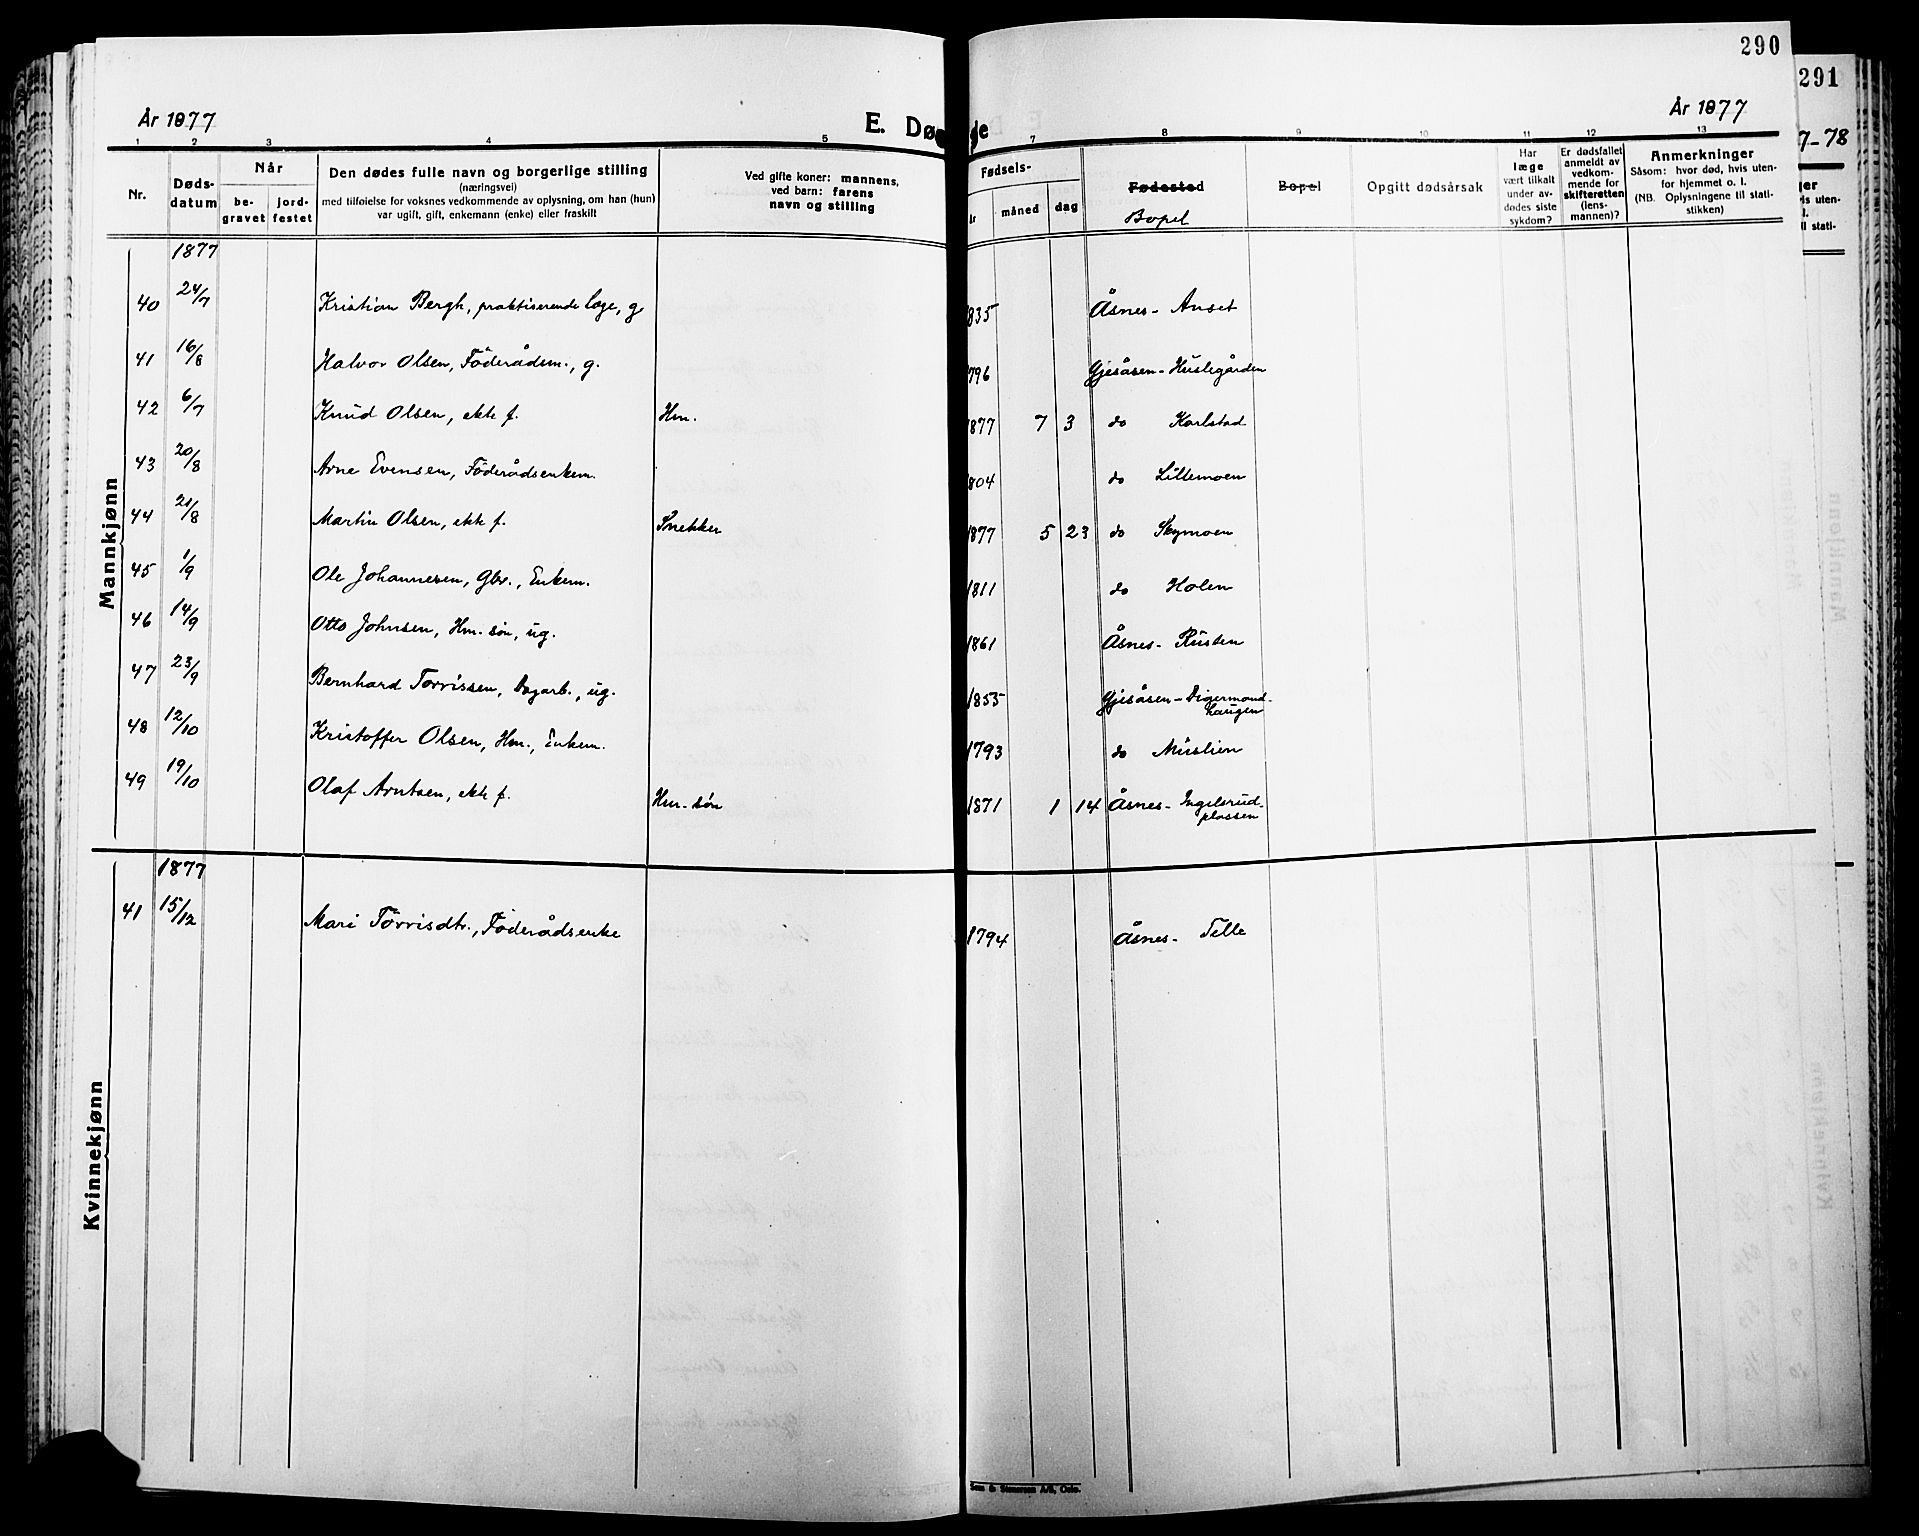 290
291
År 1877
E. Dø
de
År 1877
7-78
1 2 3 4 5 7 8 9 10 11 12 13
Nr.
Døds-
datum
Når
be-
gravet
jord-
festet
Den dødes fulle navn og borgerlige stilling
(næringsvei)
med tilføielse for voksnes vedkommende av oplysning, om han (hun)
var ugift, gift, enkemann (enke) eller fraskilt
Ved gifte koner: mannens,
ved barn: farens
navn og stilling
Fødsels-
år måned dag
Fødested
Bopel
Bopel
Opgitt dødsårsak
Har
læge
vært tilkalt
under av-
dødes siste
sykdom?
Er dødsfallet
anmeldt av
vedkom-
mende for
skifteretten
(lens-
mannen)?
Anmerkninger
Såsom: hvor død, hvis uten-
for hjemmet o. l.
(NB. Oplysningene til stati-
stikken)
ger
vis uten-
l.
il stati-
Mannkjønn
1877
40 24/7 Kristian Bergh, praktiserende læge, g 1835 Åsnes - Anset
41 16/8 Halvor Olsen, Föderådsm., g. 1796 Gjesåsen - Huslegården
42 6/7 Knud Olsen, ekte f. Hm. 1877 7 3 do Karlstad
43 20/8 Arne Evensen, Föderådsenkem. 1804 do Lillemoen
44 21/8 Martin Olsen, ekte f. Snekker 1877 5 23 do Skymoen
45 1/9 Ole Johannesen, Gbr., Enkem. 1811 do Holen
46 14/9 Otto Johnsen, Hm. søn, ug. 1861 Åsnes - Rusten
47 23/9 Bernhard Torrissen, Dagarb., ug. 1855 Gjesåsen - Digermond-
haugen
48 12/10 Kristoffer Olsen, Hm., Enkem. 1793 do Muslien
49 19/10 Olaf Arntsen, ekte f. Hm. søn 1871 1 14 Åsnes - Ingelsrud-
plassen
Kvinnekjønn
1877
41 15/12 Mari Torrisdtr., Föderådsenke 1794 Åsnes - Telle
Sem & Stenersen A/S, Oslo.